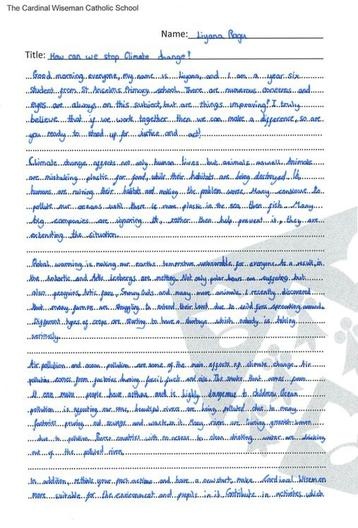 The Cardinal Wiseman Catholic School
Name: Liyana Ragu
Title: How can we stop Climate change?
Good morning everyone, my name is Liyana, and I am a year six
student from St Anselms Primary school. There are numerous concerns and
eyes are always on this subject, but are things improving? I truly
believe that if we work together then we can make a difference, so are
you ready to stand up for justice and act!
Climate change affects not only human lives but animals aswell. Animals
are mistaking plastic for food, while their habitats are being destroyed. Us
humans are ruining their habitats and making the problem worse. Many continue to
pollute our oceans until there is more plastic in the sea then fish. Many
big companies are ignoring it, rather then help prevent it, they are
extending the situation.
Global warming is making our earths temperature unbearable for everyone. As a result, in
the Antartic and Artic icebergs are melting. Not only polar bears are suffering but
also penguins, Artic foxes, Snowy Owls and many more animals. I recently discovered
that many farmers are struggling to their land due to wild fires spreading around
Different types of crops are starting to have a shortage which nobody is taking
seriously.
Air pollution and ocean pollution are some of the main effects of climate change. Air
pollution comes from factories burning fossil fuels and The smoke that comes from
it can make people have asthma and is highly dangerous to children. Ocean
pollution is affecting our seas, beautiful rivers are being polluted due to many
factories pouring out sewage and waste in it. Many rivers are turning
due to pollution. Poorer countries with no access to clean drinking water are drinking
out of the polluted rivers.
In addition, rethink your past actions and have a new start, make Cardinal Wiseman
more suitable for the environment and pupils in it. Contribute in activities which